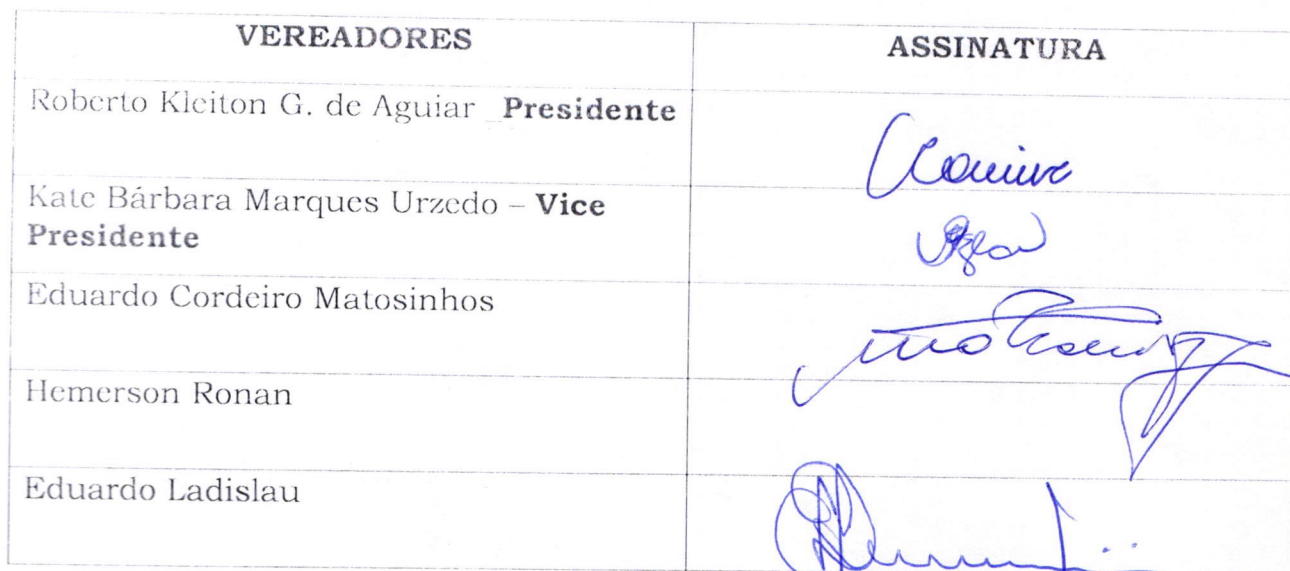 VEREADORES ASSINATURA
Roberto Kleiton G. de Aguiar _ Presidente
Kate Bárbara Marques Urzedo – Vice
Presidente
Eduardo Cordeiro Matosinhos
Hemerson Ronan
Eduardo Ladislau